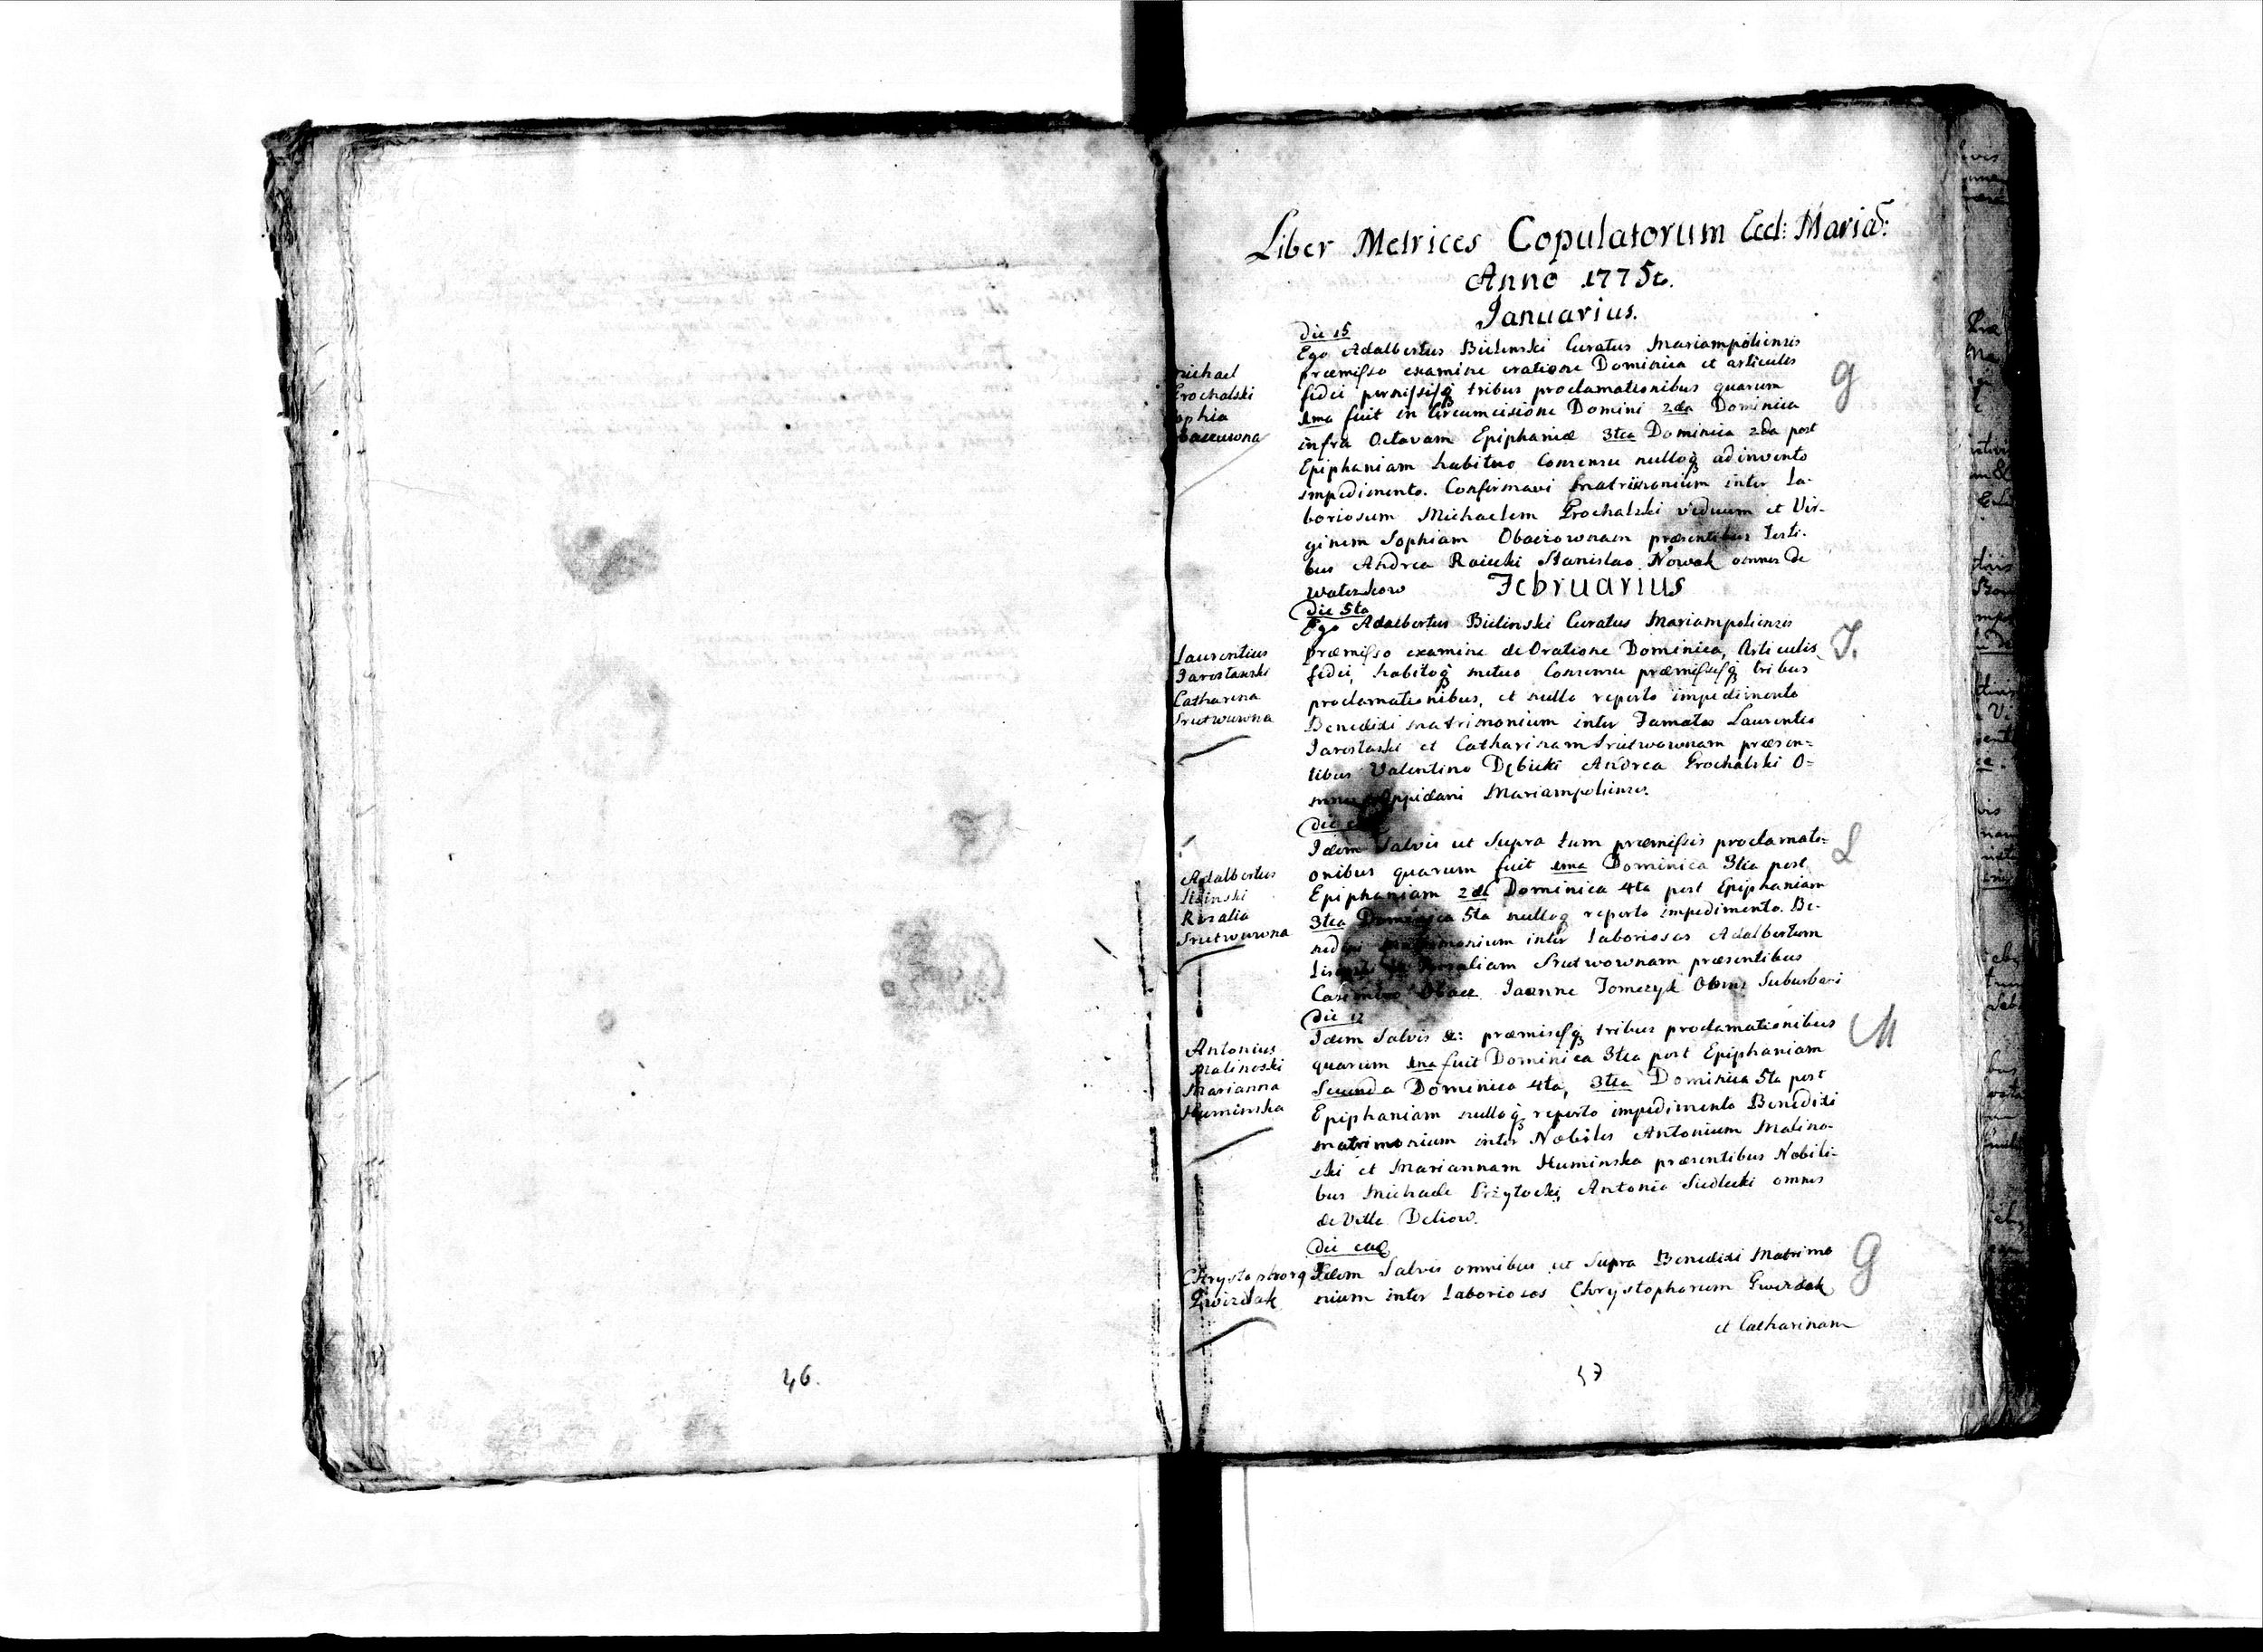 Liber Metrices Copulatorum Eccl: Maria:
Anno 1775
Januarius.
die 15
Ego Adalbertus Bielinski Curatus Mariampoliensis
præmisso examine oratione Dominica et articulis
fidei tribus proclamationibus quarum
1ma fuit in Circumcisione Domini 2da Dominica
infra Octavam Epiphaniæ 3tia Dominica 2da post
Epiphaniam habituo Consensu nulloq; ad invento
impedimento. Confirmavi matrimonium inter La-
boriosum Michaelem Grochalski viduum et Vir-
ginem Sophiam præsentibus testi-
bus Andrea Raicki Stanislao Nowak omnes de
Michael
Grochalski
ophia
g
Februarius
die 5ta
Ego Adalbertus Bielinski Curatus Mariampoliensis
præmisso examine de Oratione Dominica, Articulis
fidei, habitoq; mutuo Consensu præmissisq; tribus
proclamationibus, et nullo reperto impedimento
Benedixi matrimonium inter Famatos Laurentio
Jarosławski et Catharinam Srutwownam præsen=
tibus Valentino Dębicki Andrea Grochalski O=
mnes Oppidani Mariampolienses.
Laurentius
Jarosławski
Catharina
Srutwowna
J.
Idem Salvis ut Supra tum præmissis proclamati=
onibus quarum fuit 1ma Dominica 3tia post
Epiphaniam 2da Dominica 4ta post Epiphaniam
3tia Dominica 5ta nulloq reperto impedimento. Be-
nedixi matrimonium inter laboriosos Adalbertum
Rosaliam Srutwownam præsentibus
Casimiro Joanne Tomczyk Suburbani
Adalbertus
Rosalia
Srutwowna
L
die 12
Idem Salvis &: præmisisq; tribus proclamationibus
quarum 1ma fuit Dominica 3tia post Epiphaniam
Secunda Dominica 4ta, 3tia Dominica 5ta post
Epiphaniam nulloq; reperto impedimento Benedixi
matrimonium inter Nobiles Antonium Malino-
ski et Mariannam Huminska præsentibus Nobili-
bus Michaele Przyłocki Antonio Siedlecki omnes
de Villa Deliow.
Antonius
Malinoski
Marianna
Huminska
M
die eadem
Idem Salvis omnibus ut Supra Benedixi Matrimo
nium inter Laboriosos Chrystophorum Gwizdak
et Catharinam
Gwizdak
G
46.
47